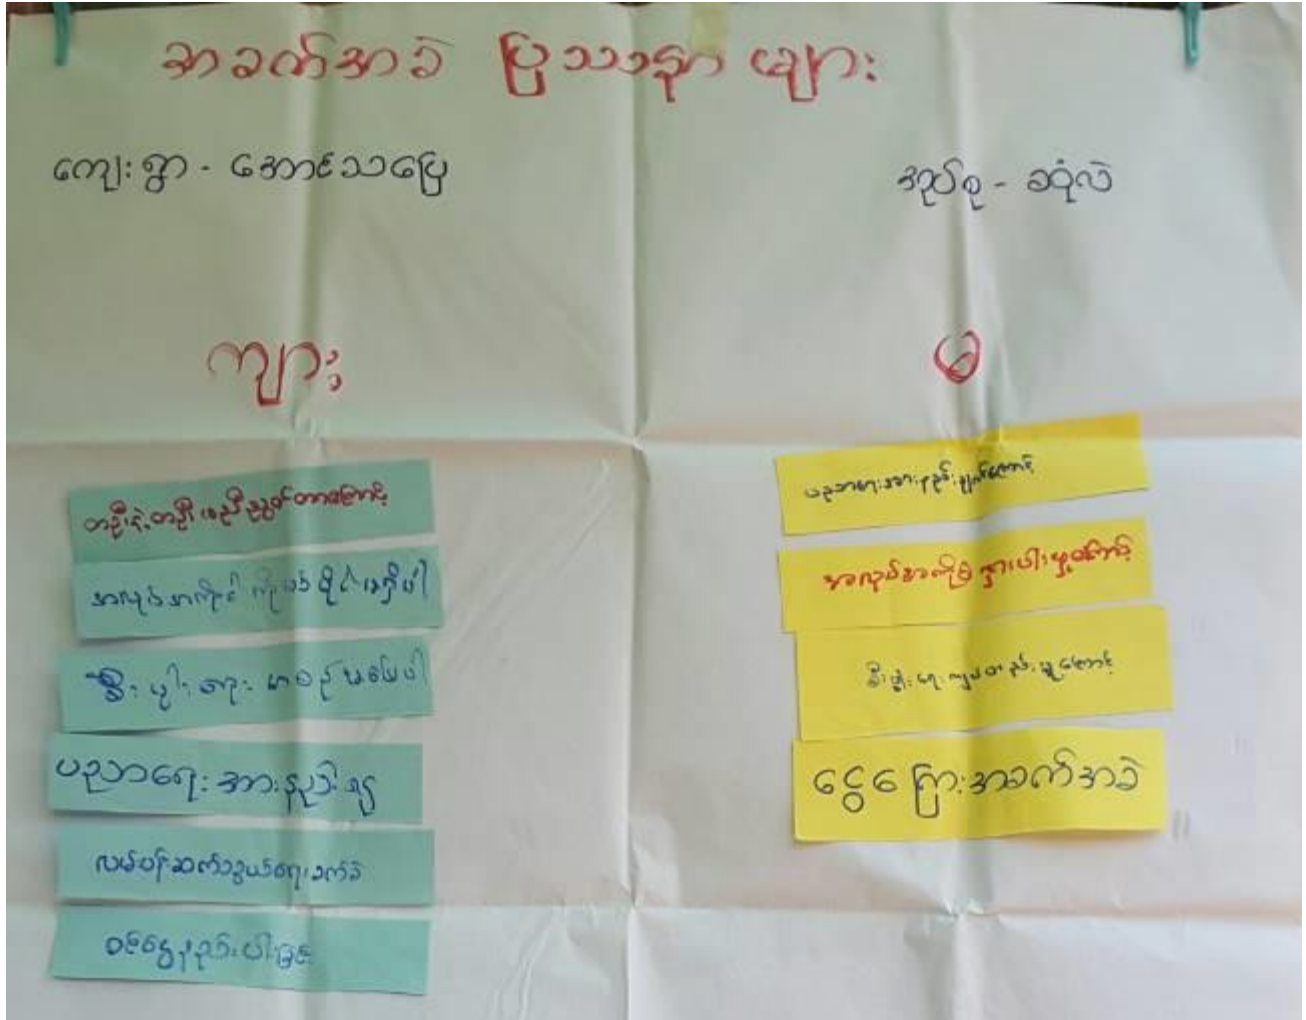 အခက်အခဲ ပြဿနာ များ
ကျေးရွာ - အောင်သပြေ
အုပ်စု - ခပုံလဲ
ကျား
မ
တဦးနဲ့တဦး မညီညွတ်တာကြောင့်
အလုပ်အကိုင် ကိုယ်ပိုင်မရှိပါ
စီးပွါးရေး အဆင်မပြေပါ
ပညာရေး အားနည်းချ
လမ်းပန်းဆက်သွယ်ရေးခက်ခဲ
ဝင်ငွေနည်းပါးခြင်း
ပညာရေးအားနည်းချက်ကြောင့်
အလုပ်အကိုင်ရှားပါးမှုကြောင့်
စီးပွားရေးကျပ်တည်းမှုကြောင့်
ငွေကြေးအခက်အခဲ